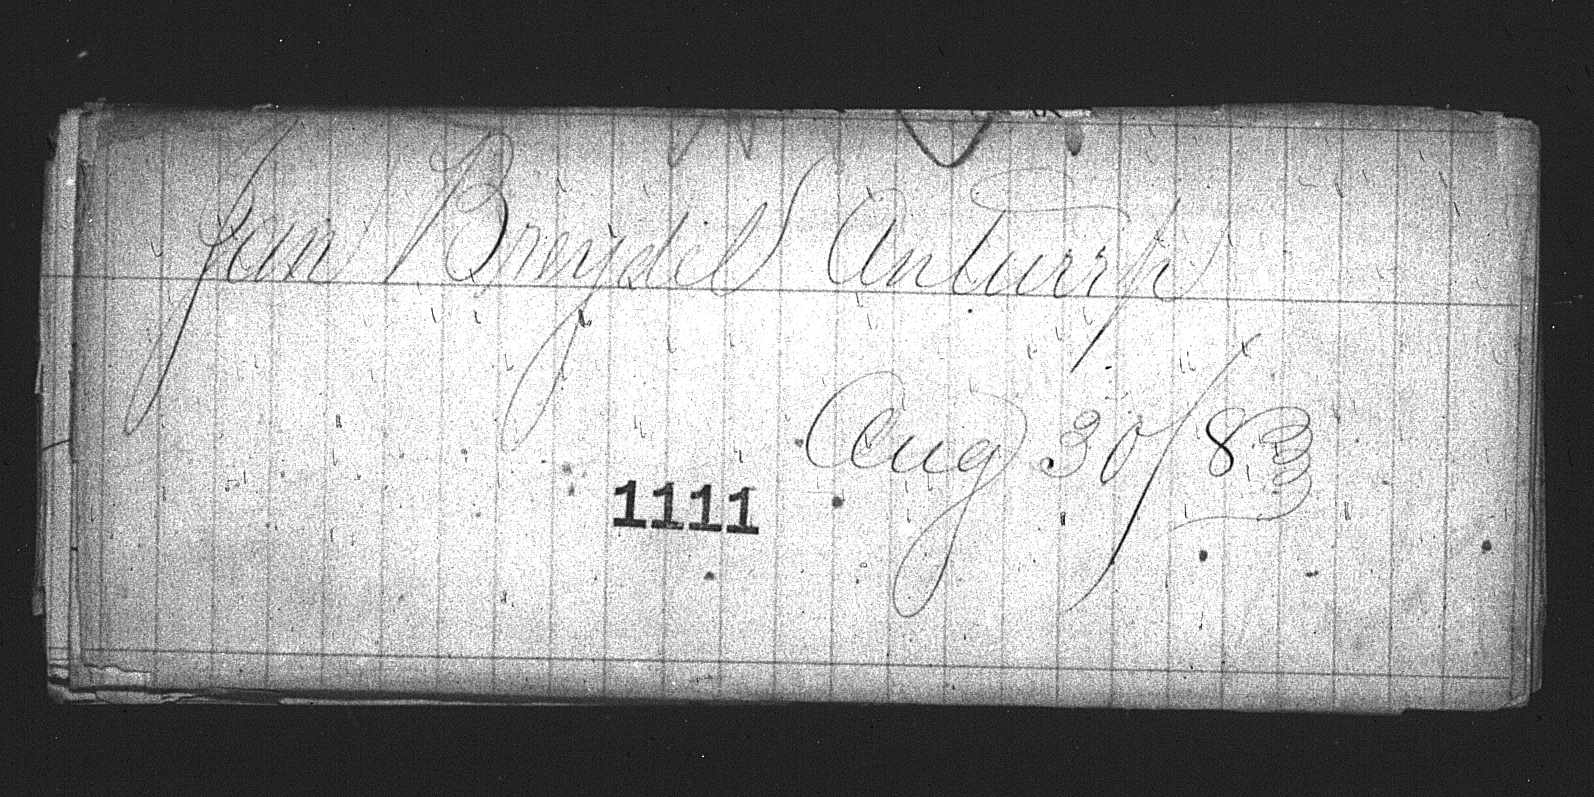 Jan Breydel Antwerp
Aug 30/83
1111